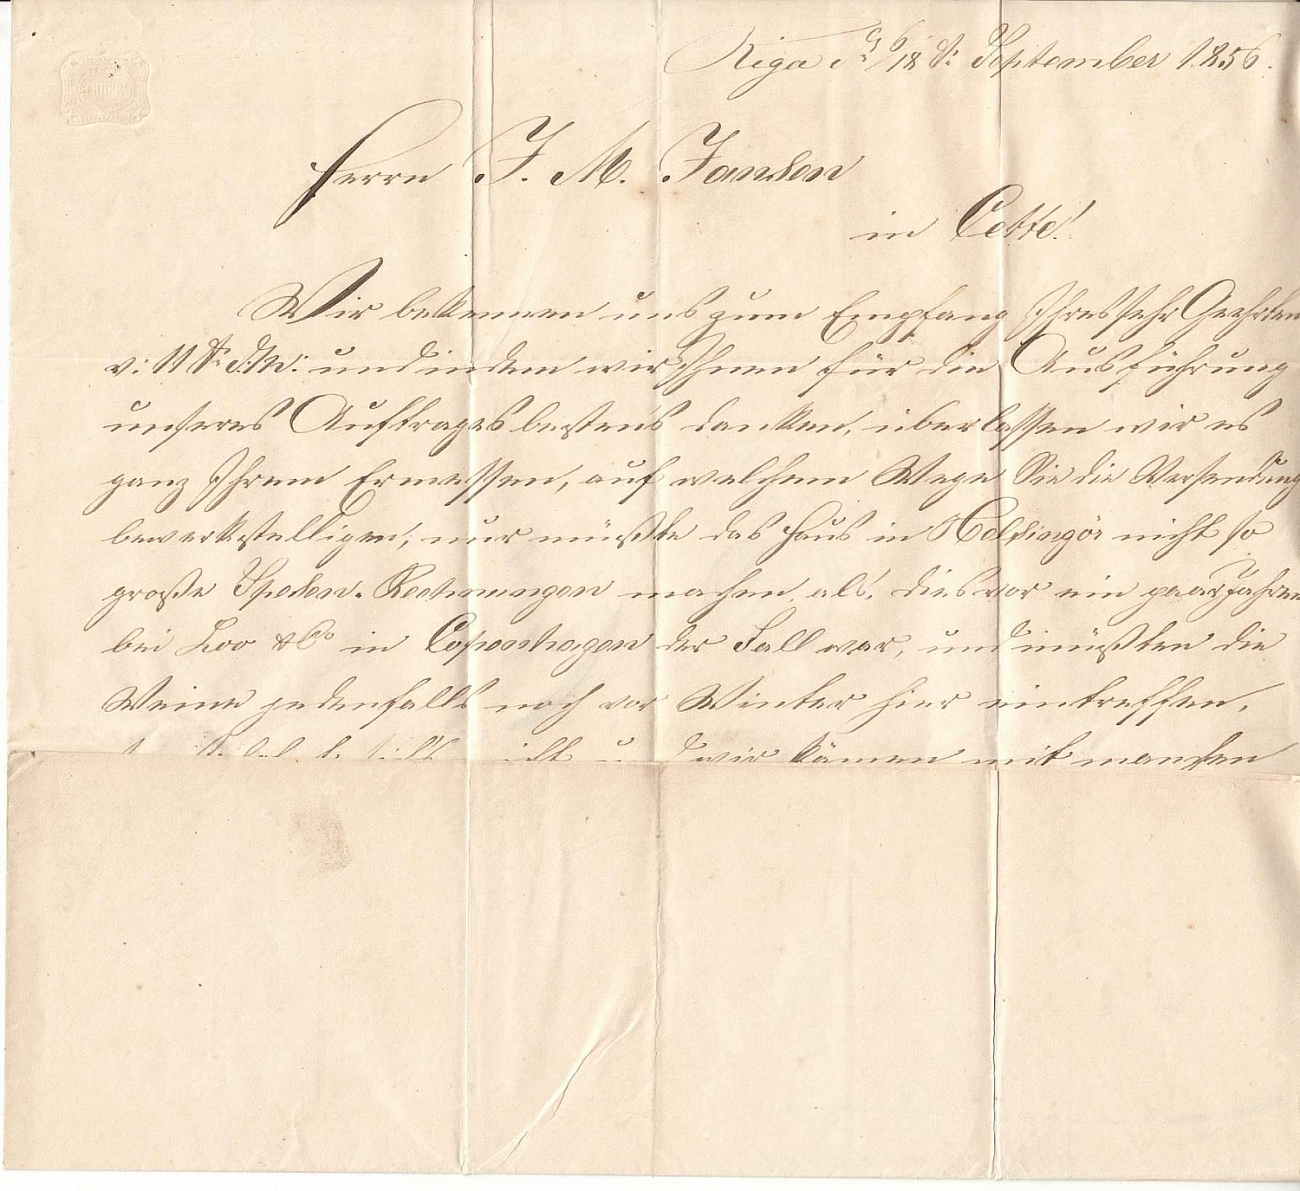 Riga d. 6/18 t: September 1856.
Herrn J. M. Jansen
in Cette!
Wir bekennen uns zum Empfang Ihres sehr Geehrten
v: 11 t: d. M: und indem wir Ihnen für die Ausführung
unseres Auftrages bestens danken, überlassen wir es
ganz Ihrem Ermessen, auf welchem Wege Sie die Versendung
bewerkstelligen, nur müßte das Haus in Helsingör nicht so
große Spesen-Rechnungen machen, als dies vor ein paar Jahren
bei & Co in Copenhagen der Fall war, und müßten die
Weine jedenfalls noch vor Winter hier eintreffen,
und wir kämen mit manchen